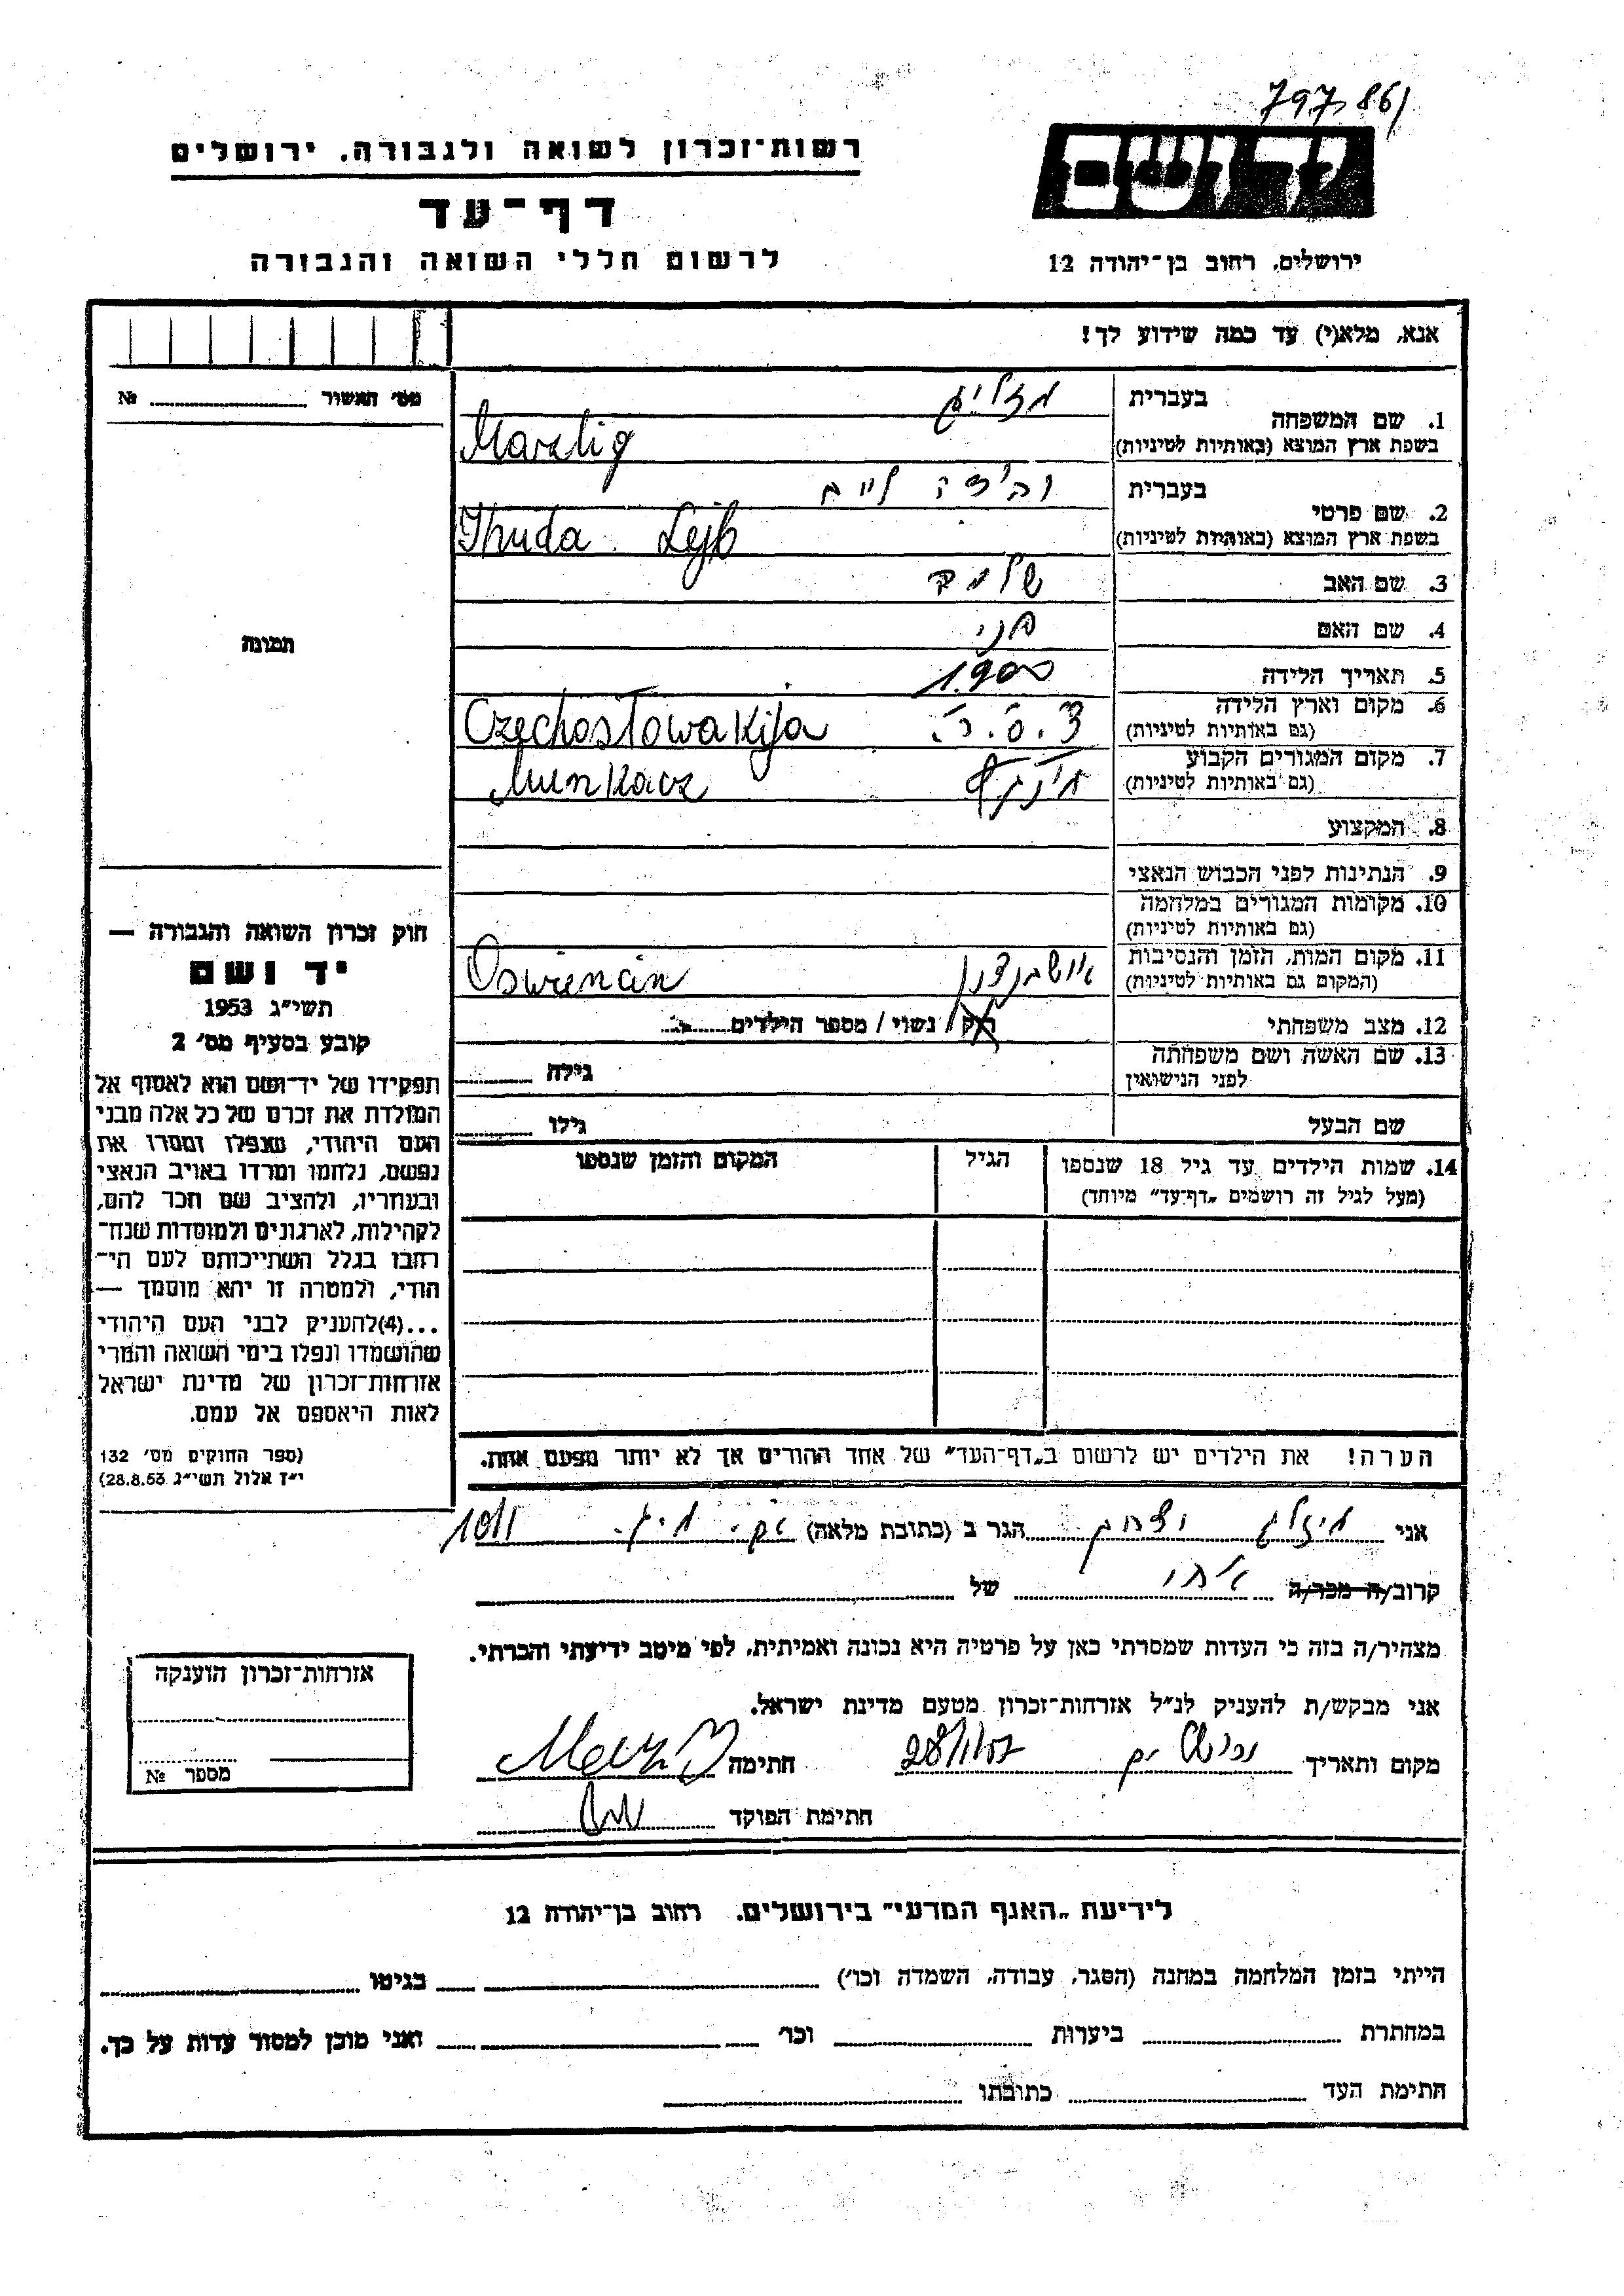 797,861
יד ושם
רשות־זכרון לשואה ולגבורה, ירושלים
דף־עד
לרשום חללי השואה והגבורה
ירושלים, רחוב בן־יהודה 12
אנא, מלא(י) עד כמה שידוע לך!
מס׳ האשור № 
1. שם המשפחה בעברית
בשפת ארץ המוצא (באותיות לטיניות) Marzlig
2. שם פרטי בעברית
בשפת ארץ המוצא (באותיות לטיניות) Ihuda Lejb
3. שם האב שלמה
4. שם האם
5. תאריך הלידה 1900
6. מקום וארץ הלידה צ.ס.ר. Czechosłowakija
(גם באותיות לטיניות)
7. מקום המגורים הקבוע Munkacz
(גם באותיות לטיניות)
8. המקצוע
9. הנתינות לפני הכבוש הנאצי
10. מקומות המגורים במלחמה
(גם באותיות לטיניות)
11. מקום המות, הזמן והנסיבות Oswiencin
(המקום גם באותיות לטיניות)
12. מצב משפחתי רוק / נשוי / מספר הילדים
13. שם האשה ושם משפחתה גילה
לפני הנישואין
שם הבעל גילו
14. שמות הילדים עד גיל 18 שנספו הגיל המקום והזמן שנספו
(מעל לגיל זה רושמים „דף־עד״ מיוחד)
הערה! את הילדים יש לרשום ב„דף־העד״ של אחד ההורים אך לא יותר מפעם אחת.
תמונה
חוק זכרון השואה והגבורה —
יד ושם
תשי״ג 1953
קובע בסעיף מס׳ 2
תפקידו של יד־ושם הוא לאסוף אל
המולדת את זכרם של כל אלה מבני
העם היהודי, שנפלו ומסרו את
נפשם, נלחמו ומרדו באויב הנאצי
ובעוזריו, ולהציב שם וזכר להם,
לקהילות, לארגונים ולמוסדות שנח־
רבו בגלל השתייכותם לעם הי־
הודי, ולמטרה זו יהא מוסמך —
...(4) להעניק לבני העם היהודי
שהושמדו ונפלו בימי השואה והמרי
אזרחות־זכרון של מדינת ישראל
לאות היאספם אל עמם.
(ספר החוקים מס׳ 132
י״ז אלול תשי״ג 28.8.53)
אני הגר ב (כתובת מלאה) 10/1
קרוב/ה מכר/ה של
מצהיר/ה בזה כי העדות שמסרתי כאן על פרטיה היא נכונה ואמיתית, לפי מיטב ידיעתי והכרתי.
אני מבקש/ת להעניק לנ״ל אזרחות־זכרון מטעם מדינת ישראל.
מקום ותאריך 28/1/57 חתימה
חתימת הפוקד
אזרחות־זכרון הוענקה
מספר №
לידיעת „האגף המדעי״ בירושלים, רחוב בן־יהודה 12
הייתי בזמן המלחמה במחנה (הסגר, עבודה, השמדה וכו׳) בגיטו
במחתרת ביערות וכו׳ ואני מוכן למסור עדות על כך.
חתימת העד כתובתו